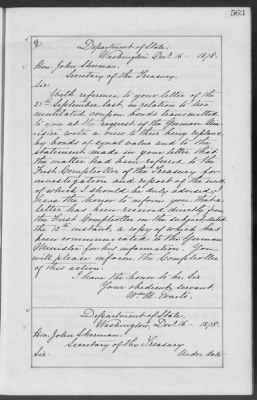 563
Department of State,
Washington Decr. 16 - 1878.
Hon. John Sherman,
Secretary of the Treasury.
Sir:
With reference to your letter of the
21st September last, in relation to two
mutilated coupon bonds transmitted
to you at the request of the German Min-
ister with a view to their being replaced
by bonds of equal value and to the
statement made in your letter that
the matter had been referred to the
First Comptroller of the Treasury for
investigation and report of the result
of which I should be duly advised, I
have the honor to inform you that a
letter has been received directly from
the First Comptroller on the subject dated
the 13th instant, a copy of which has
been communicated to the German
Minister for his information. You
will please inform the Comptroller
of this action.
I have the honor to be, Sir
Your obedient servant,
Wm. M. Evarts.
Department of State,
Washington, Decr. 16 - 1878.
Hon. John Sherman,
Secretary of the Treasury
Sir: Under date